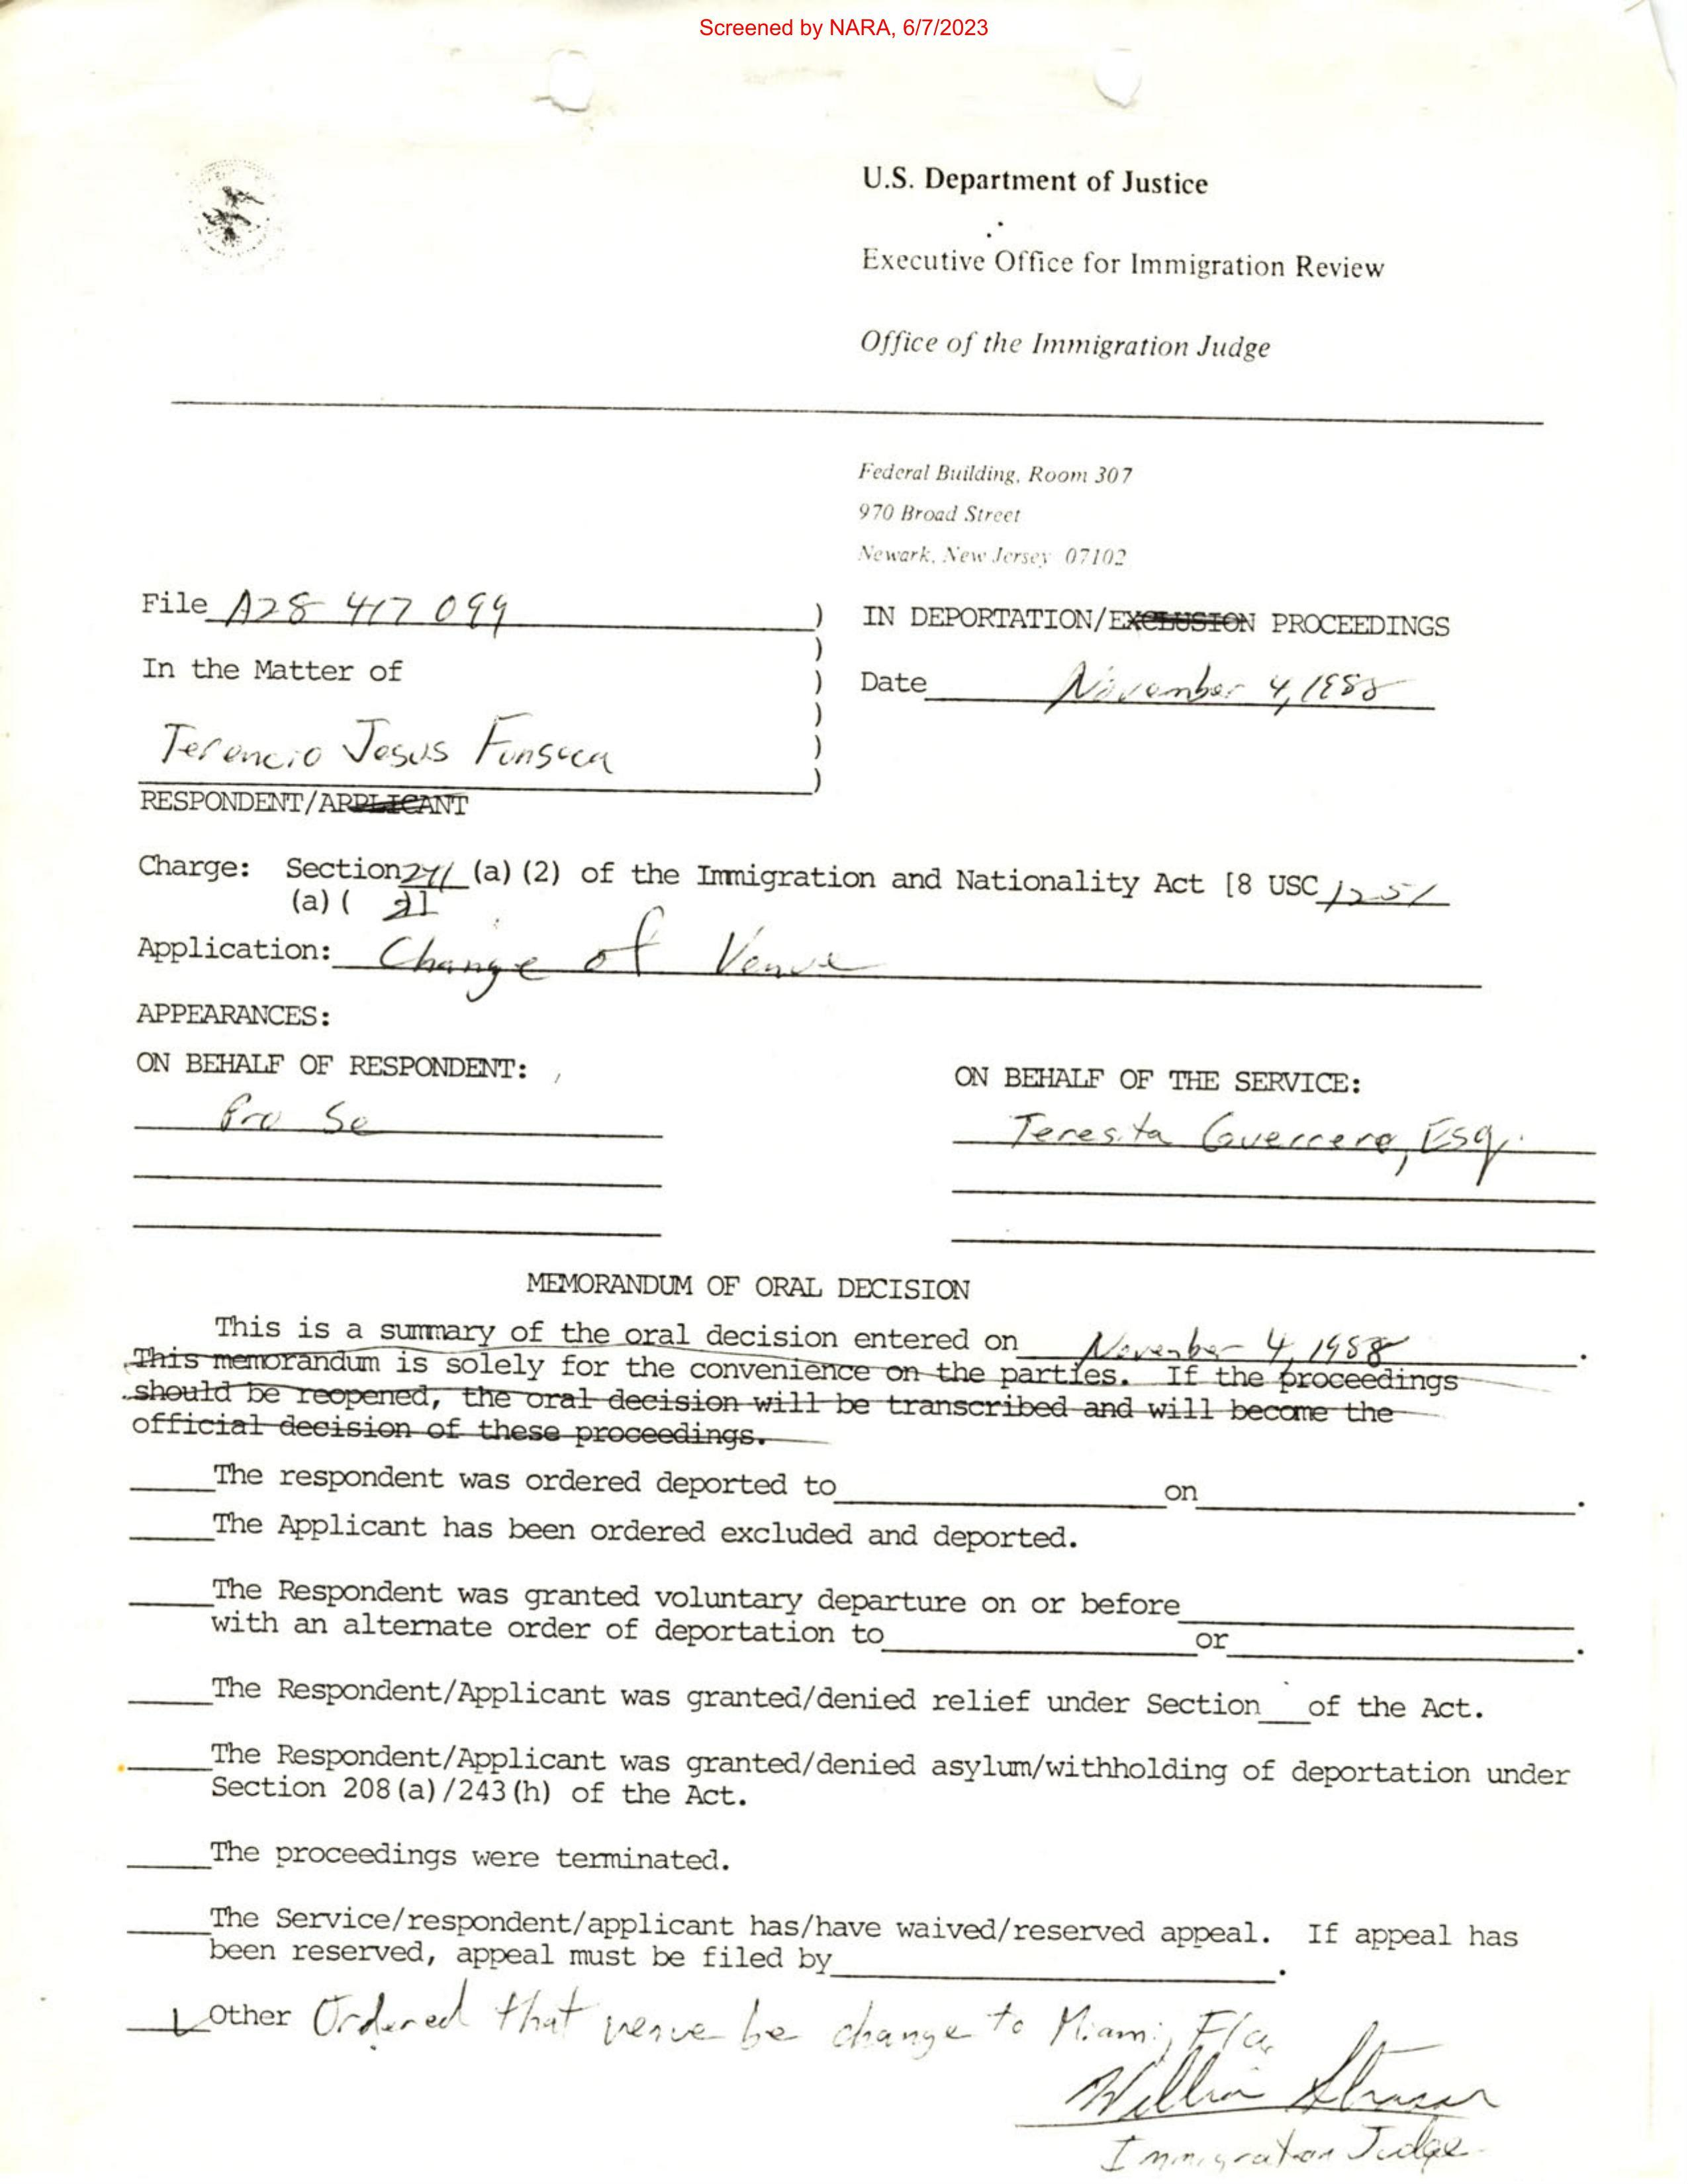 Screened by NARA, 6/7/2023
U.S. Department of Justice
Executive Office for Immigration Review
Office of the Immigration Judge
Federal Building, Room 307
970 Broad Street
Newark, New Jersey 07102
File A28 417 099 )
IN DEPORTATION/EXCLUSION PROCEEDINGS
)
In the Matter of )
Date November 4, 1988
)
Terencio Jesus Fonseca )
)
RESPONDENT/APPLICANT
Charge: Section 241 (a)(2) of the Immigration and Nationality Act [8 USC 1251
(a)( 2]
Application: Change of Venue
APPEARANCES:
ON BEHALF OF RESPONDENT:
ON BEHALF OF THE SERVICE:
Pro Se
Teresita Guerrero, Esq.
MEMORANDUM OF ORAL DECISION
This is a summary of the oral decision entered on November 4, 1988.
This memorandum is solely for the convenience on the parties. If the proceedings
should be reopened, the oral decision will be transcribed and will become the
official decision of these proceedings.
The respondent was ordered deported to on .
The Applicant has been ordered excluded and deported.
The Respondent was granted voluntary departure on or before
with an alternate order of deportation to or .
The Respondent/Applicant was granted/denied relief under Section of the Act.
The Respondent/Applicant was granted/denied asylum/withholding of deportation under
Section 208(a)/243(h) of the Act.
The proceedings were terminated.
The Service/respondent/applicant has/have waived/reserved appeal. If appeal has
been reserved, appeal must be filed by .
Other Ordered that venue be change to Miami, Fla.
William Strasser
Immigration Judge